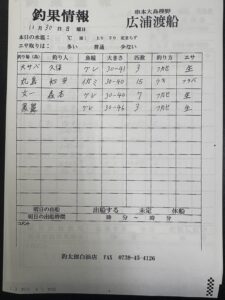 釣果情報
串本大島樫野
広浦渡船
11月30日 日曜日
本日の水温: ℃ 潮: 上り 下り 定まらず
エサ取りは: 多い 普通 少ない
釣り場(島) 釣り人 魚種 大きさ 匹数 釣り方 エサ
大サバ 久保 グレ 30-41 3 フカセ 生
30-40 15
グレ 30-40 7 フカセ 生
グレ 30-46 3 フカセ 生
明日の出船 出船する 未定 休船
明日の出船時間 時 分 ~ 時 分
コメント
釣太郎白浜店 FAX 0739-45-4126